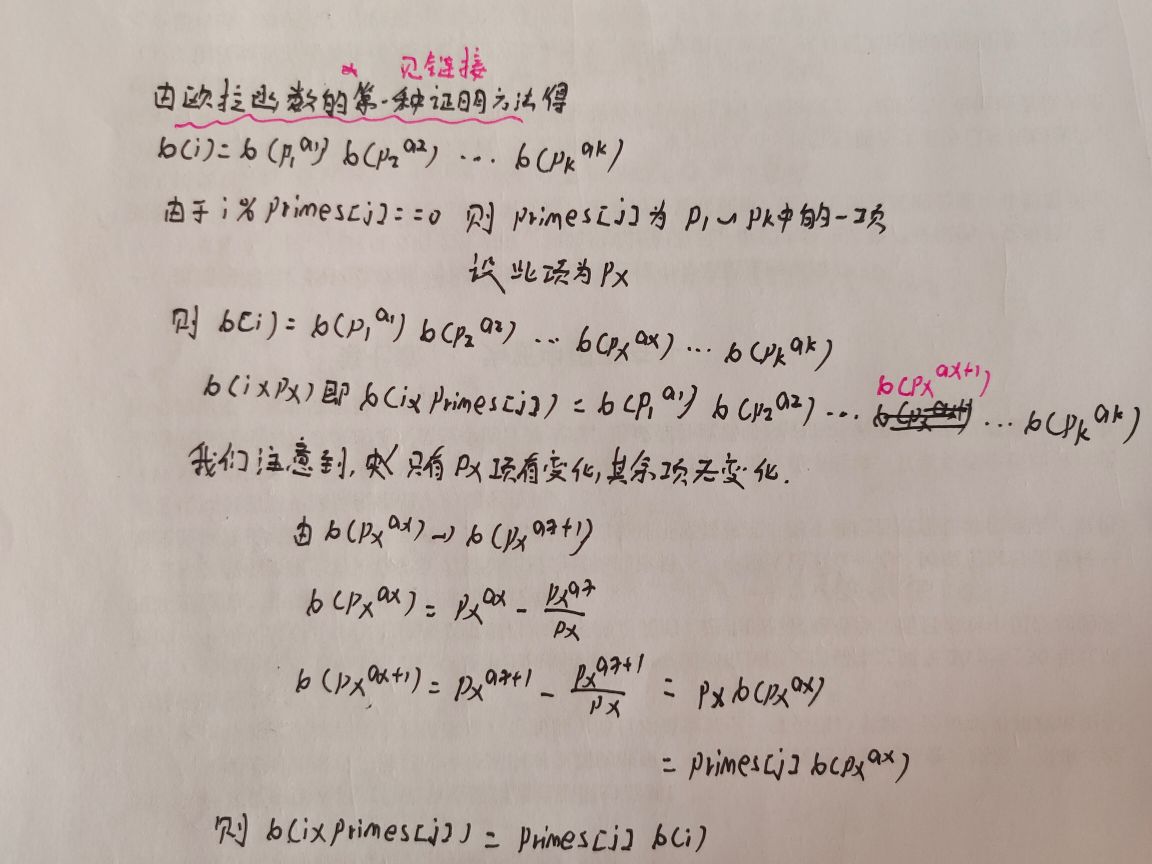 * 见链接
由欧拉函数的第一种证明方法得
b(i)=b(p₁^a₁) b(p₂^a2) ... b(pₖ^ak)
由于 i % primes[j]==0 则 primes[j]为 p₁~pk中的一项
设此项为px
则 b(i) = b(p₁^a₁) b(p₂^a2) ... b(pₓ^ax) ... b(pₖ^ak)
b(pₓ^ax+1)
b(i×px)即 b(i×primes[j]) = b(p₁^a₁) b(p₂^a2) ... ... b(pₖ^ak)
我们注意到, 只有px项有变化,其余项无变化.
由 b(pₓ^ax) → b(pₓ^ax+1)
b(pₓ^ax) = pₓ^ax - pₓ^ax/px
b(pₓ^ax+1) = pₓ^ax+1 - pₓ^ax+1/px = px b(pₓ^ax)
= primes[j] b(pₓ^ax)
则 b(i×primes[j]) = primes[j] b(i)